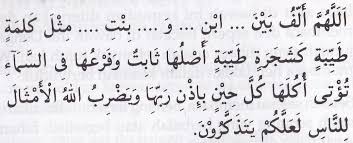 اَللّٰهُمَّ اَلِّفْ بَيْنَ .... ابْنِ ... وَ .... بِنْتِ .... مِثْلَ كَلِمَةٍ
طَيِّبَةٍ كَشَجَرَةٍ طَيِّبَةٍ أَصْلُهَا ثَابِتٌ وَفَرْعُهَا فِى السَّمَآءِ
تُؤْتِى أُكُلَهَا كُلَّ حِيْنٍ بِإِذْنِ رَبِّهَا وَيَضْرِبُ اللهُ الْأَمْثَالَ
لِلنَّاسِ لَعَلَّكُمْ يَتَذَكَّرُوْنَ.